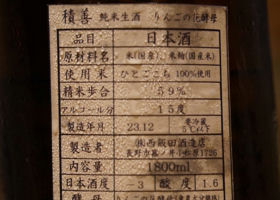 積善 純米生酒 りんごの花酵母
品目 日本酒
原材料名 米(国産)、米麹(国産米)
使用米 ひとごこち 100%使用
精米歩合 59%
アルコール分 15度
製造年月 23.12 要冷蔵 5℃以下
製造者 ㈱西飯田酒造店
長野市篠ノ井小松原1726
内容量 1800ml
日本酒度 −3 酸度 1.6
酵母 りんごの花酵母